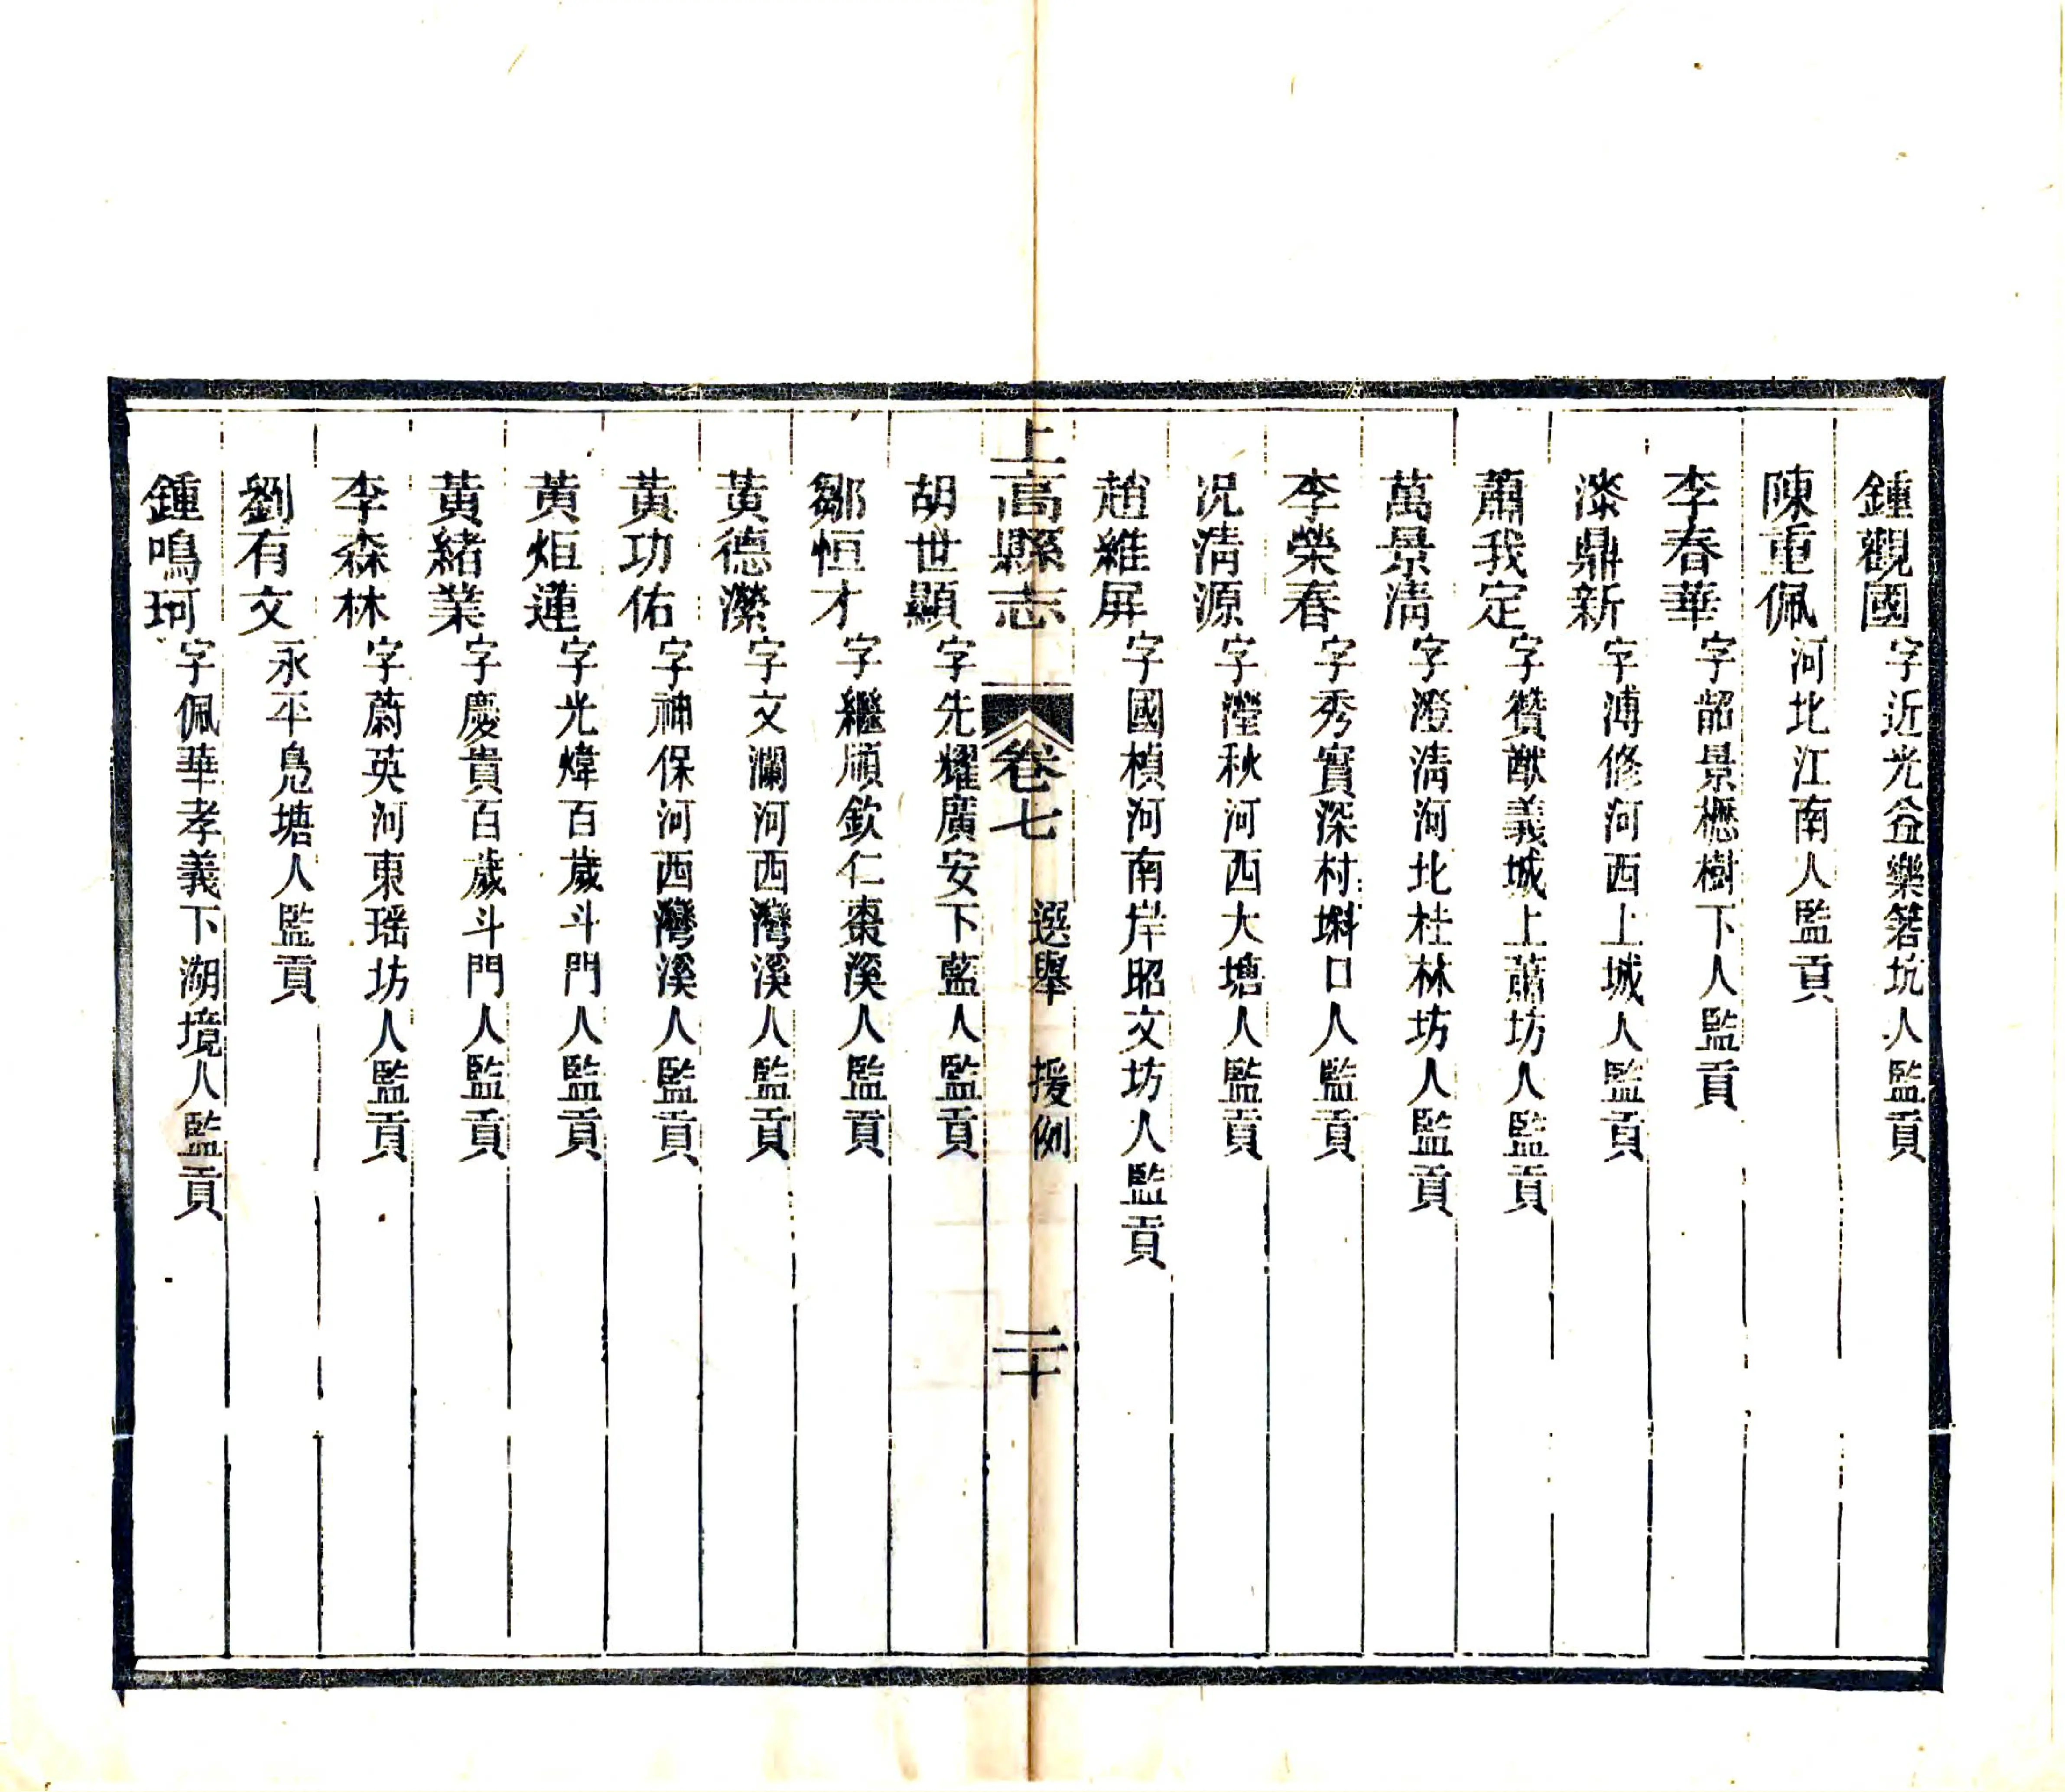 鍾觀國字近光益樂箬坑人監貢
陳重佩河北江南人監貢
李春華字韶景櫪樹下人監貢
漆鼎新字溥修河西上城人監貢
蕭我定字贊猷義城上蕭坊人監貢
萬景清字澄清河北桂林坊人監貢
李榮春字秀實深村㙩口人監貢
况清源字瀅秋河西大塘人監貢
趙維屏字國楨河南岸昭文坊人監貢
上高縣志 卷七 選舉 援例 二十
胡世顯字先耀廣安下藍人監貢
鄒恒才字繼順欽仁棗溪人監貢
黃德瀠字文瀾河西灣溪人監貢
黃功佑字神保河西灣溪人監貢
黃炬蓮字光煒百歲斗門人監貢
黃緒業字慶貴百歲斗門人監貢
李森林字蔚英河東瑶坊人監貢
劉有文永平鳧塘人監貢
鍾鳴珂字佩華孝義下湖境人監貢